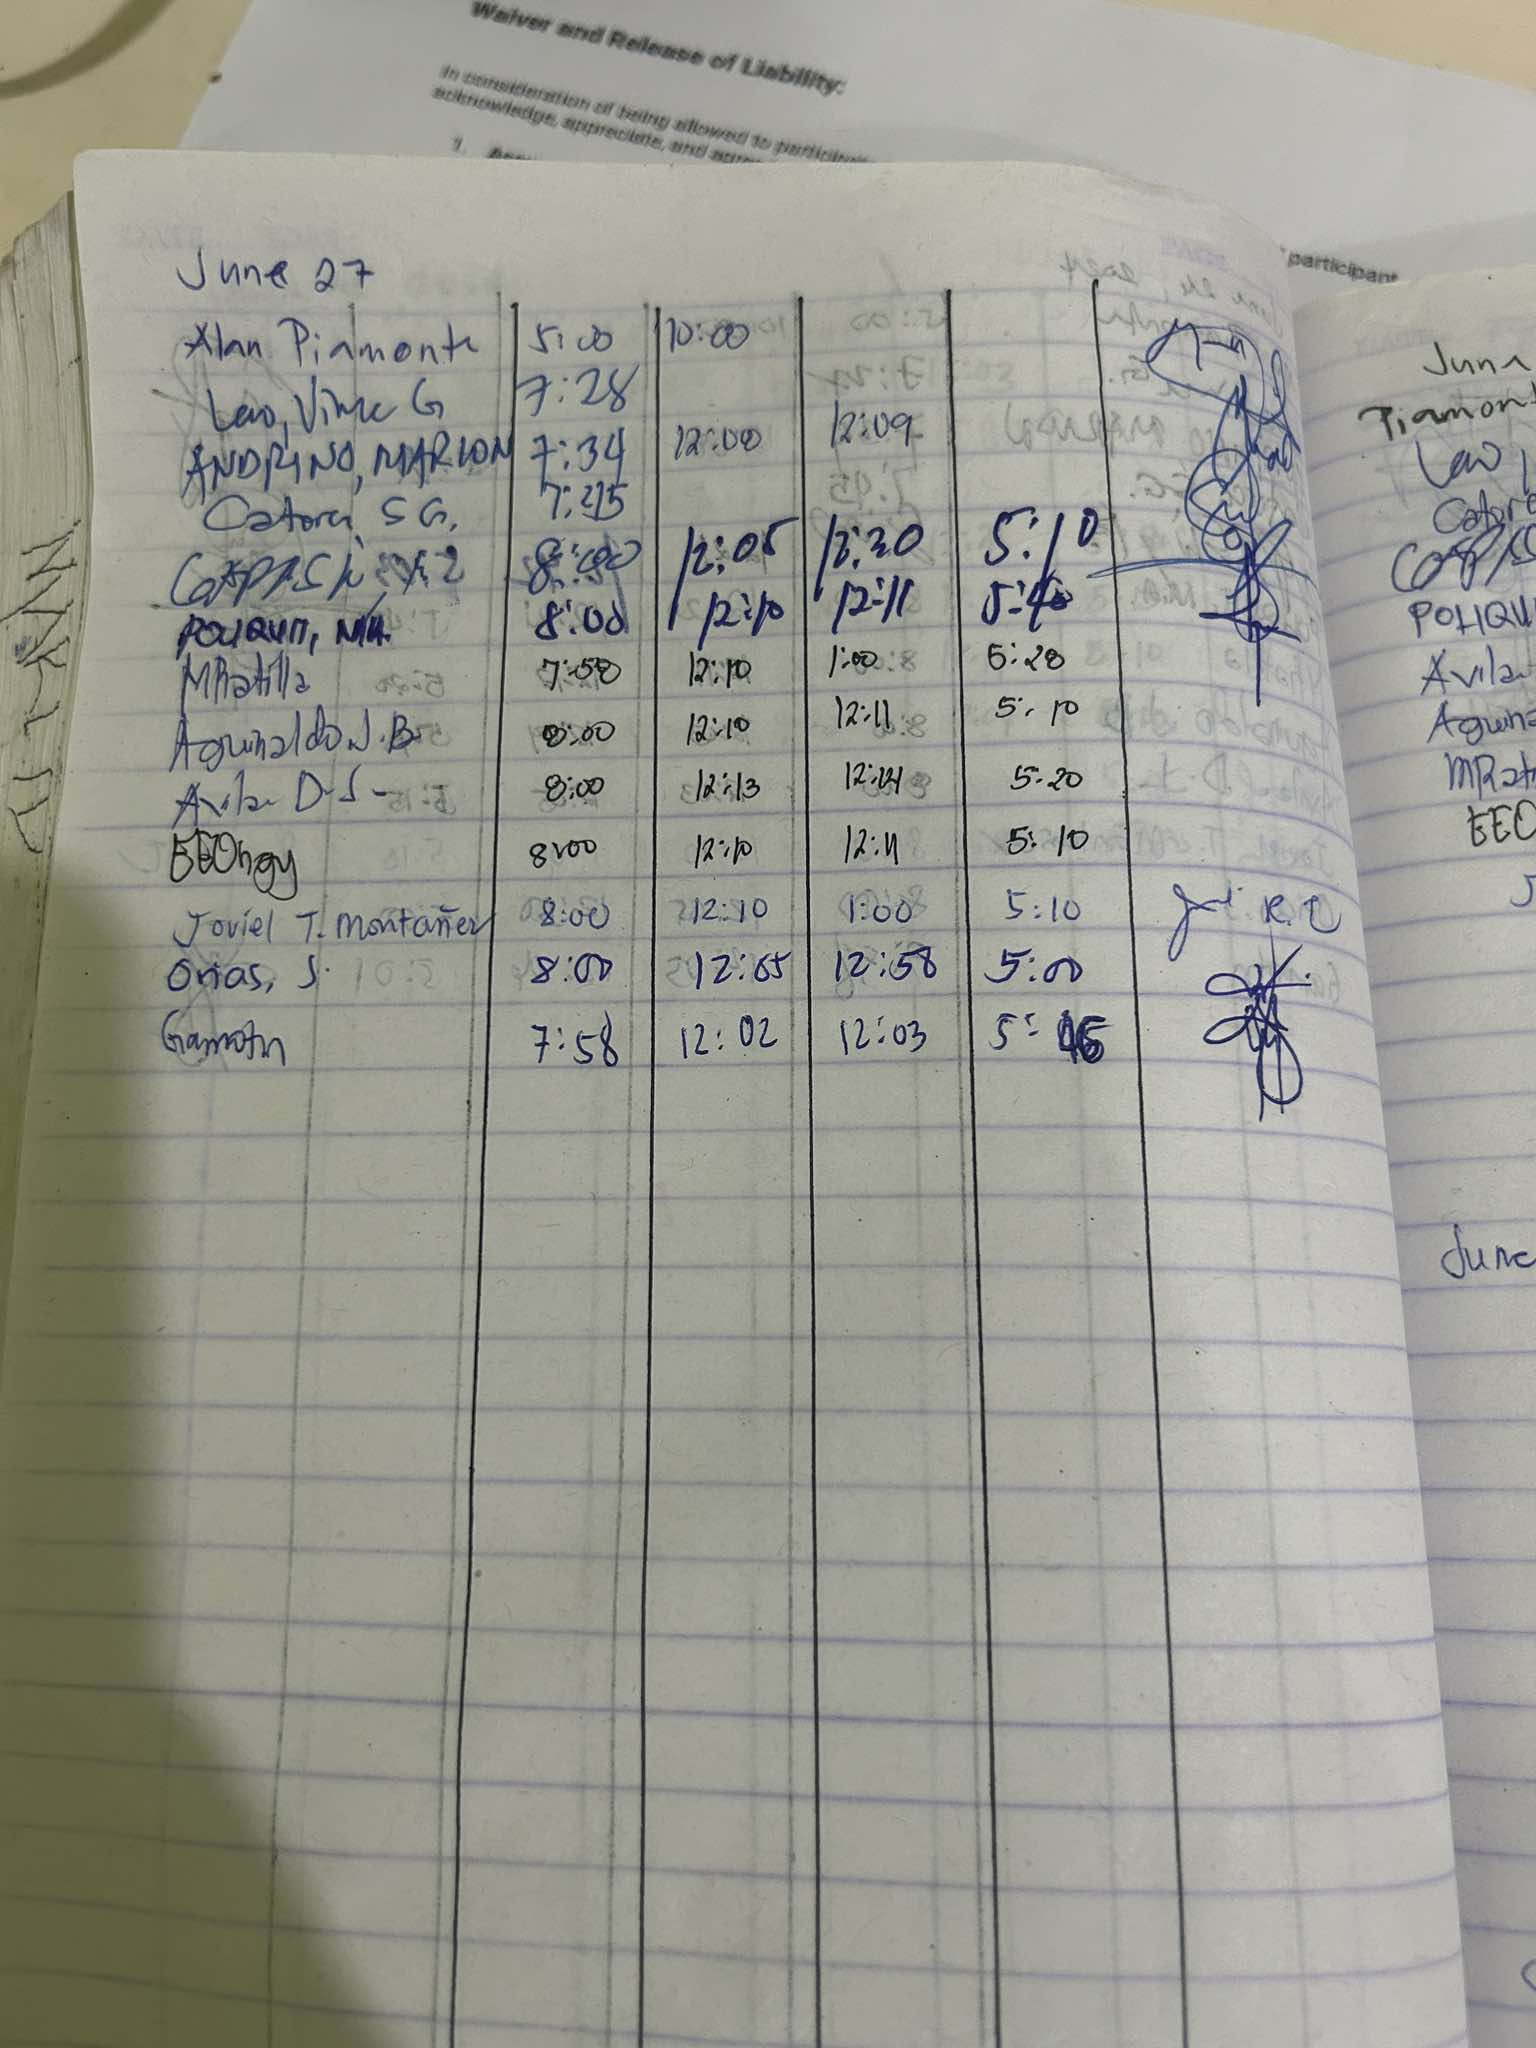 Waiver and Release of Liability:
In consideration of being allowed to participate
acknowledge, appreciate, and agree
1.
participant
June 27
Alan Piamonte 5:00 10:00
Lao, Vince G 7:28
ANDRINO, MARION 7:34 12:00 12:09
S G.
8:00 12:05 12:30 5:10
POLIQUIT, 8:00 12:10 12:11
MRatilla 7:58 12:10 1:00 5:20
Aguinaldo J.B. 8:00 12:10 12:11 5:10
Avila D.S 8:00 12:13 5:20
EEOngy 8:00 12:10 12:11 5:10
Joviel T. Montañez 8:00 12:10 1:00 5:10
Orias, S. 8:00 12:05 12:58 5:00
7:58 12:02 12:03
June
Piamont
Lao,
POLIQU
Avila
Aguina
MRat
EEO
June